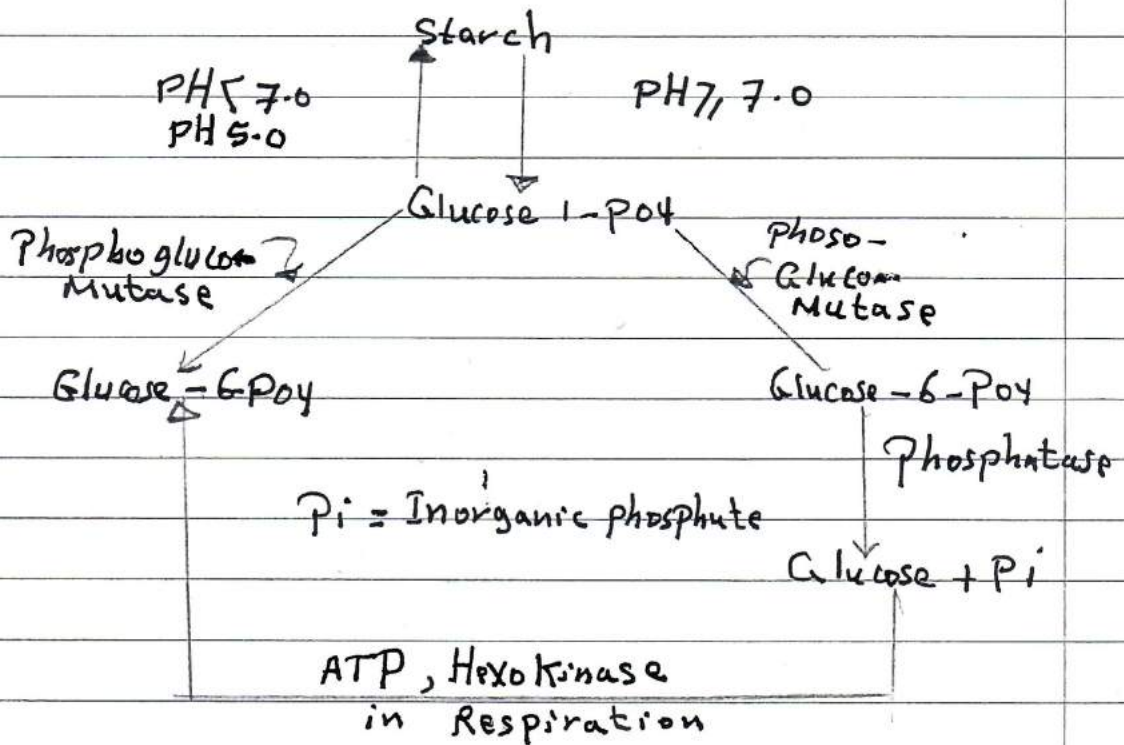 Starch
PH < 7.0
PH 5.0
PH ⩾ 7.0
Glucose 1-PO4
Phosphogluco-
Mutase
Phoso-
Gluco-
Mutase
Glucose-6PO4
Glucose-6-PO4
Phosphatase
Pi = Inorganic phosphate
Glucose + Pi
ATP, Hexokinase
in Respiration